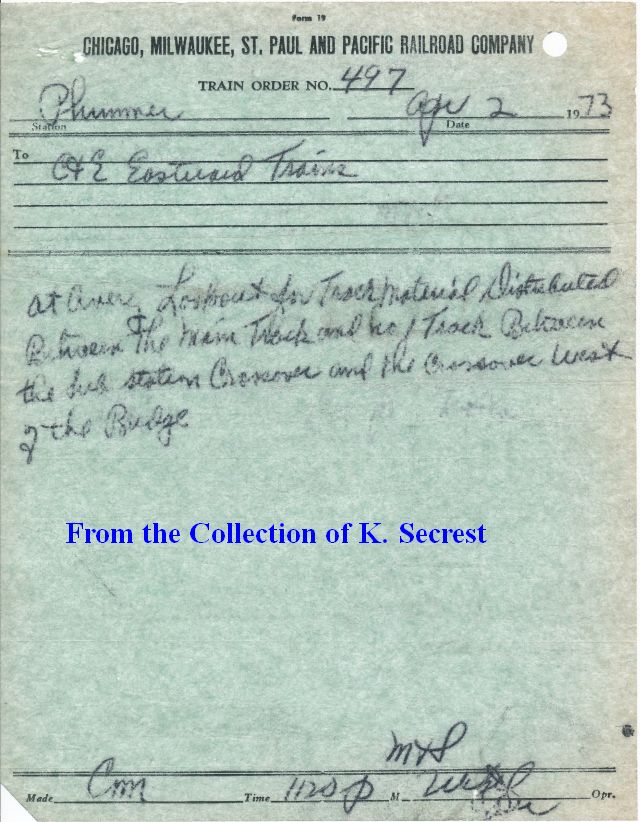 Form 19
CHICAGO, MILWAUKEE, ST. PAUL AND PACIFIC RAILROAD COMPANY
TRAIN ORDER NO. 497
Plummer Apr 2 1973
Station Date
To C&E Eastward Trains
At Avery Lookout for Track Material Distributed
Between The Main Track and no 1 Track Between
the sub station Crossover and the crossover West
of the Bridge
From the Collection of K. Secrest
Made Com Time 1120 P M Opr.